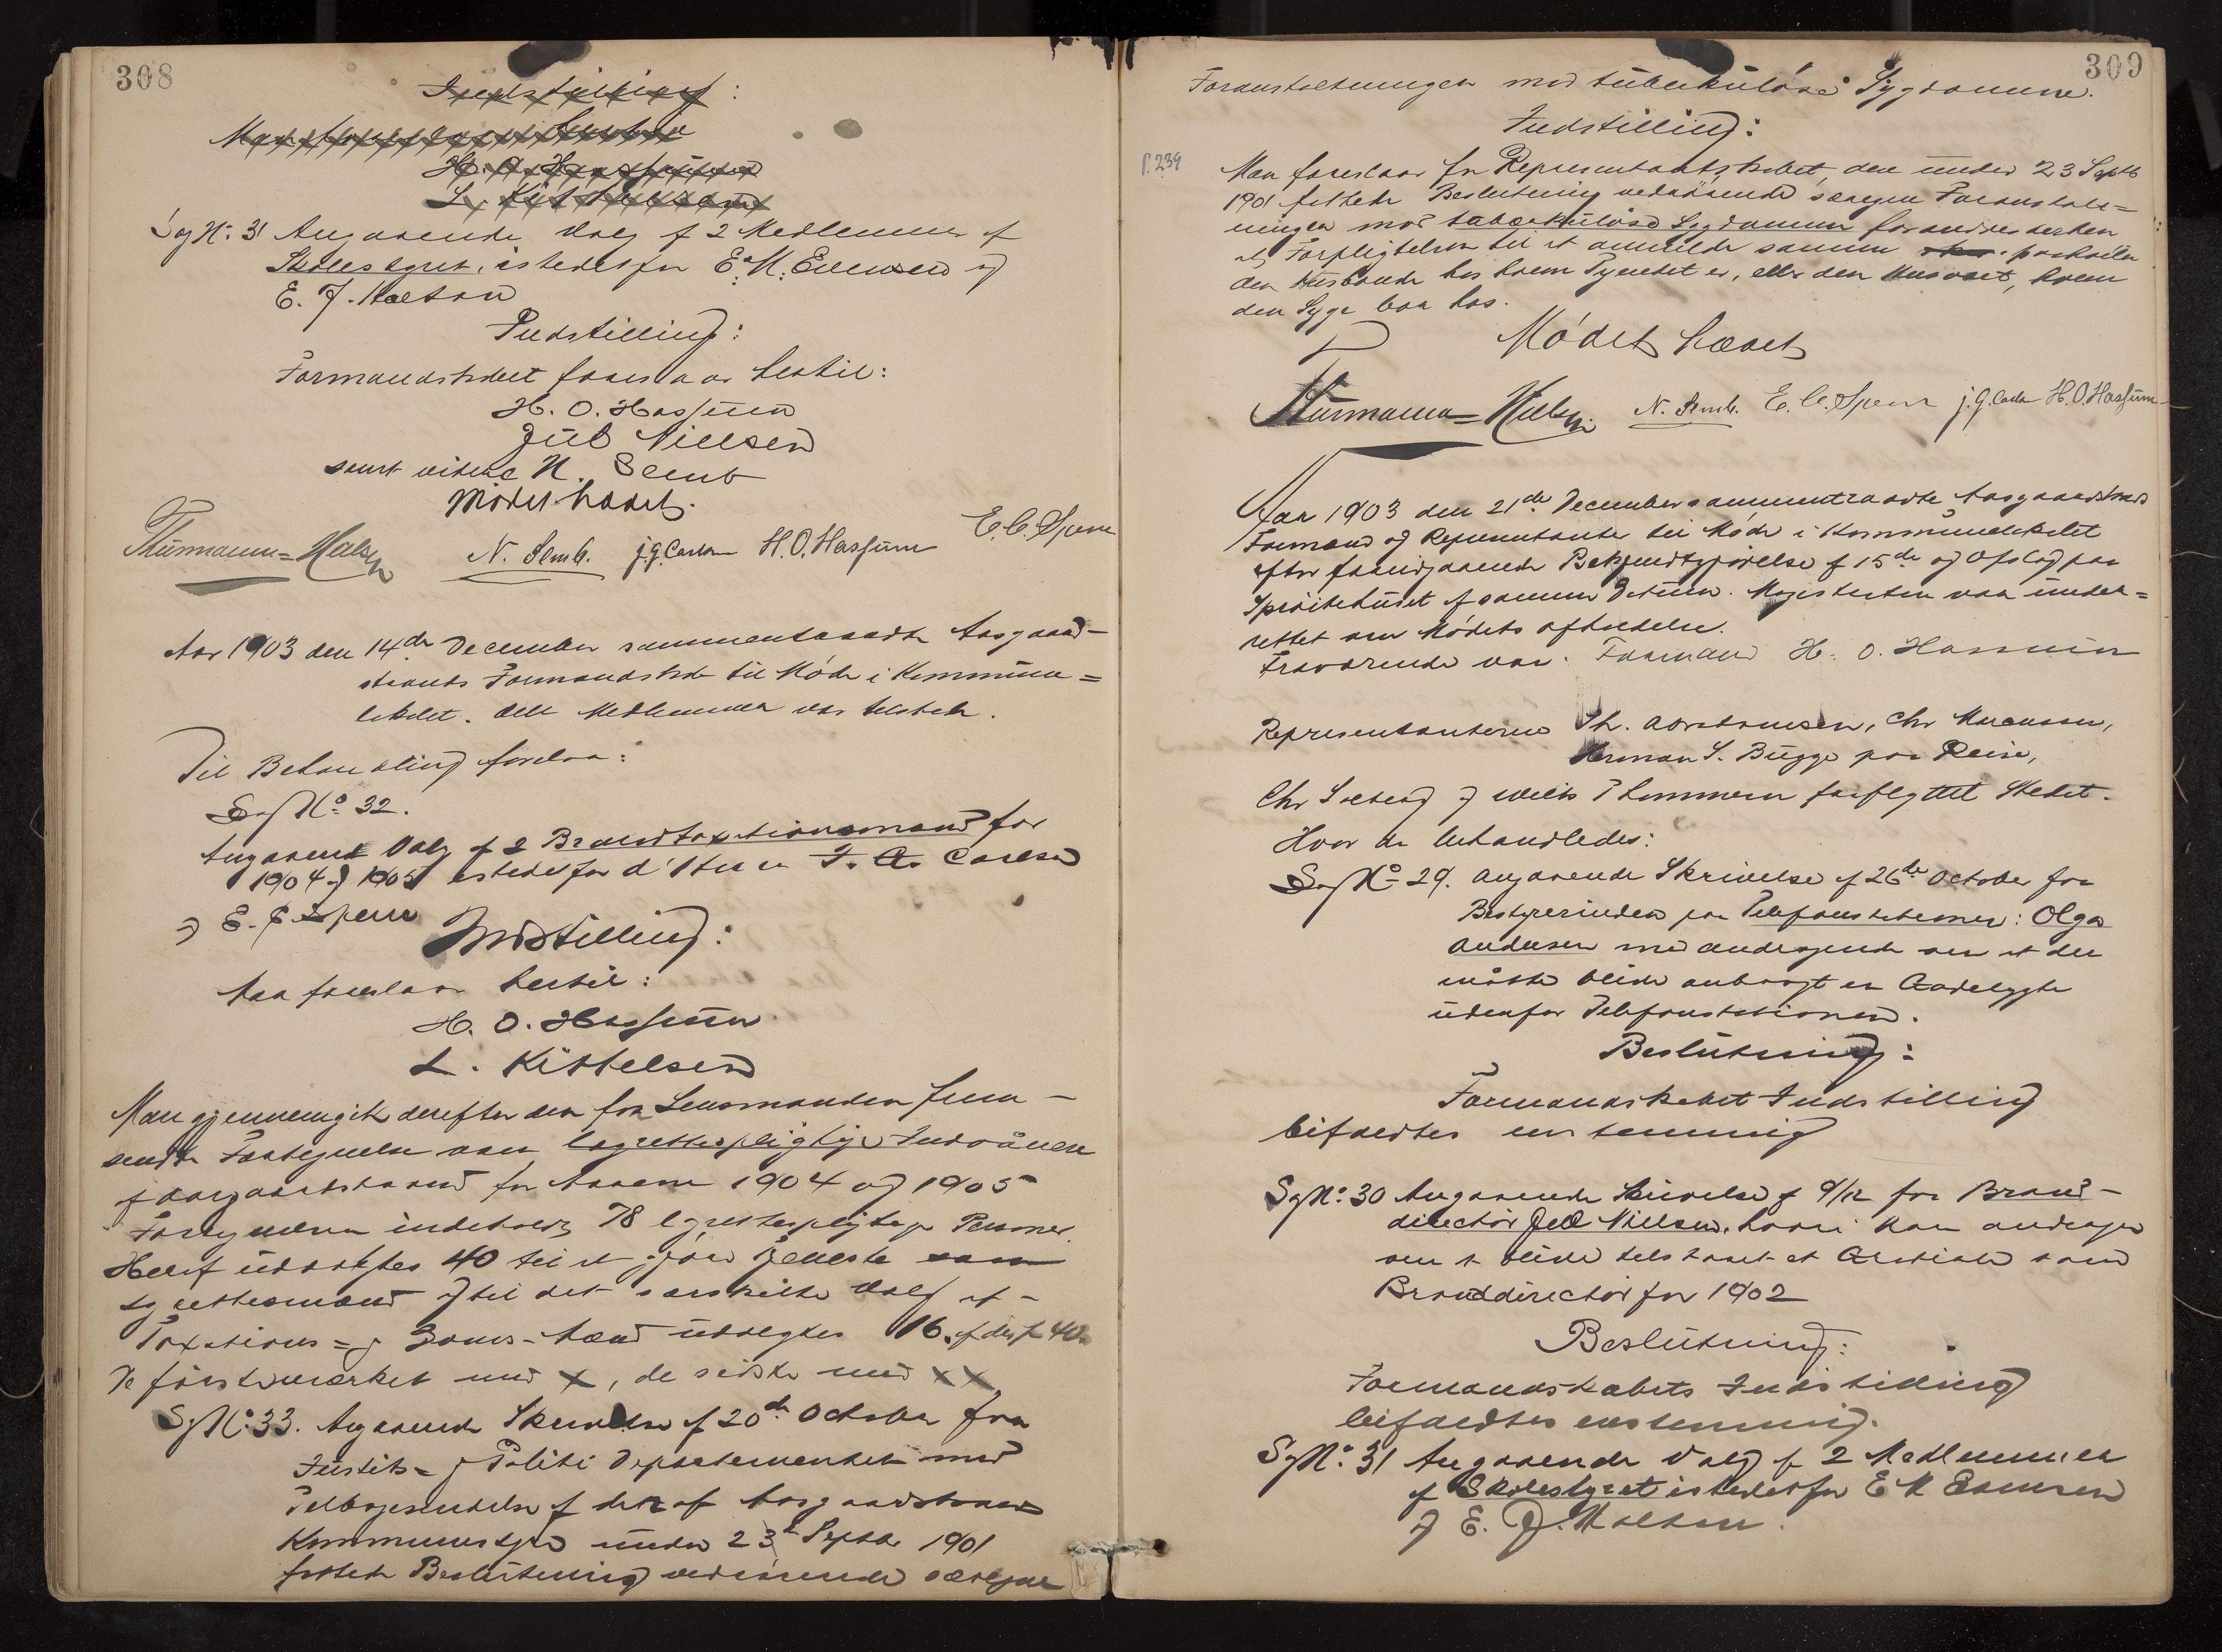 308
Indstilling:
H. O. Hassum
L. Kittelsen
Sag No. 31 Angaaende Valg af 2 Medlemmer af
Skolestyret, istedetfor E. M. Evensen og
E. J. Holtan
Indstilling:
Formandskabet foreslaar hertil:
H. O. Hassum
Jul Nielsen
samt videre N. Semb
Mødet hævet.
Thurmann=Nielsen N. Semb. j.g. Carlsen H.O.Hassum E.C.Spern
Aar 1903 den 14de December sammentraadte Aasgaard-
strands Formandskab til Møde i Kommune=
lokalet. Alle Medlemmer var tilstede.
Til Behandling forelaa:
Sag No. 32.
Angaaende Valg af 2 Brandtaxtionsmænd for
1904 og 1905 istedetfor d'Herrer J. G. Carlsen
og E. C Spern
Indstilling:
Man foreslaar hertil:
H. O. Hassum
L. Kittelsen
Man gjennemgik derefter den fra Lensmanden frem-
sendte Fortegnelse over lagrettespligtige Indvånere
af Aasgaardstrand for Aarene 1904 og 1905
Fortegnelsen indeholdt 78 lagrettespligtige Personer.
Heraf udvalgtes 40 til at gjøre Tjeneste som
Lagrettesmænd og til det særskilte Valg af
Taxtions= og Skjøns-Mænd udvalgtes 16 af disse 40.
De første mærket med X, de sidste med XX
Sag No. 33. Angaaende Skrivelse af 20de October fra
Justits- og Politi Departementet med
Tilbagesendelse af det af Aasgaardstrands
Kommunestyre under 23de Septbr 1901
fattede Beslutning vedrørende særegne
309
Foranstaltninger mod tuberkuløse Sygdomme.
Indstilling:
P.239
Man foreslaar for Representantskabet, den under 23 Septb
1901 fattede Beslutning vedrørende særegne Foranstalt=
ninger mod tuberkuløse Sygdomme forandres derhen
at Forpligtelsen til at anmelde samme paahviler
den Husbonde hos hvem Tyendet er, eller den Husvært, hvem
den Syge bor hos.
Mødet hævet
Thurmann=Nielsen N. Semb. E.C.Spern j.g. Carlsen H.O.Hassum
Aar 1903 den 21de December sammentraadte Aasgaardstrands
Formænd og Representanter til Møde i Kommunelokalet
efter foregaaende Bekjendtgjørelse af 15de og Opslag paa
Sprøitehuset af samme Datum. Magistraten var under=
rettet om Mødets afholdelse.
Fraværende var: Formand H. O. Hassum
Representanterne Th. Abrahamsen, Chr Marcussen,
Herman S. Bugge paa Reise,
Chr Solberg og Wilh Thommesen forflyttet Stedet.
Hvor da behandledes:
Sag No. 29. angaaende Skrivelse af 26de October fra
Bestyrerinden paa Telefonstationen: Olga
Andersen med andragende om at der
måtte blive anbragt en Gadelygte
udenfor Telefonstationen.
Beslutning:
Formandskabets Indstilling
bifaldtes enstemmig
Sag No. 30 Angaaende Skrivelse af 9/12 fra Brand-
director Jul Nielsen, hvori han andrager
om at blive tilstaaet et Gratiale som
Branddirector for 1902
Beslutning:
Formandskabets Indstilling
bifaldtes enstemmig.
Sag No. 31 Angaaende Valg af 2 Medlemmer
af Skolestyret istedetfor E M Evensen
og E. J. Holtan.